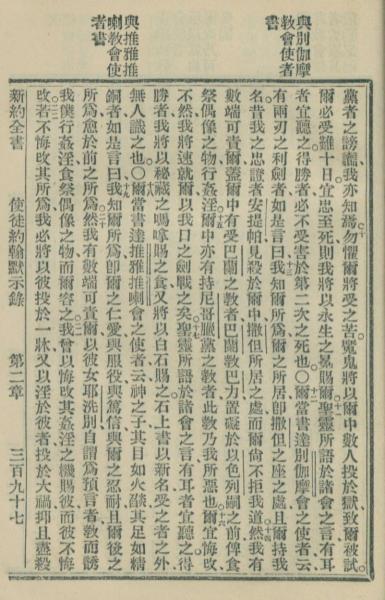 與別伽摩
教會使者
書
與推雅推
喇教會使
者書
黨者之謗讟我亦知焉勿懼爾將受之苦魔鬼將以爾中數人投於獄致爾被試
爾必受難十日宜忠至死則我將以永生之冕賜爾聖靈所語於諸會之言有耳
者宜聽之得勝者必不受害於第二次之死也○爾當書達別伽摩會之使者云
有兩刃之利劍者如是言曰我知爾所爲爾之所居卽撒但之座之處且爾持我
名昔我之忠證者安提帕見殺於爾中撒但所居之處而爾尙不拒我道然我有
數端可責爾蓋爾中有受巴蘭之教者巴蘭教巴勒置礙於以色列嗣之前俾食
祭偶像之物行姦淫爾中亦有持尼哥臘黨之教者此教乃我所惡也爾宜悔改
不然我將速就爾以我口之劍戰之矣聖靈所語於諸會之言有耳者宜聽之得
勝者我將以秘藏之嗎嗱賜之食又將以白石賜之石上書以新名受之者之外
無人識之也○爾當書達推雅推喇會之使者云神之子其目如火燄其足如精
銅者如是言曰我知爾所爲卽爾之仁愛與服役與篤信與爾之忍耐且爾後之
所爲愈於前之所爲然我有數端可責爾以彼女耶洗別自謂爲預言者教而誘
我僕行姦淫食祭偶像之物而爾容之我曾以悔改其姦淫之機賜彼而彼不悔
改若不悔改其所爲我必將以彼投於一牀又以淫於彼者投於大禍抑且盡殺
新約全書 使徒約翰默示錄 第二章 三百九十七